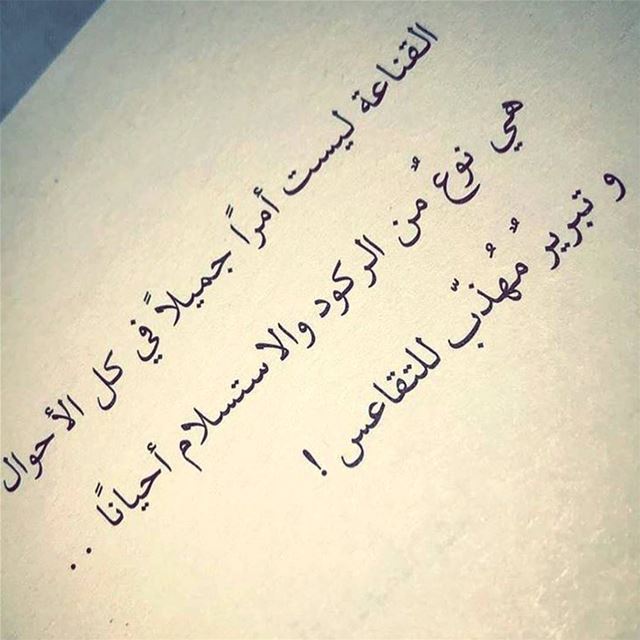 القناعة ليست أمراً جميلاً في كل الأحوال
هي نوعٌ من الركود والاستسلام أحيانًا ..
و تبريرٌ مُهذّب للتقاعس !